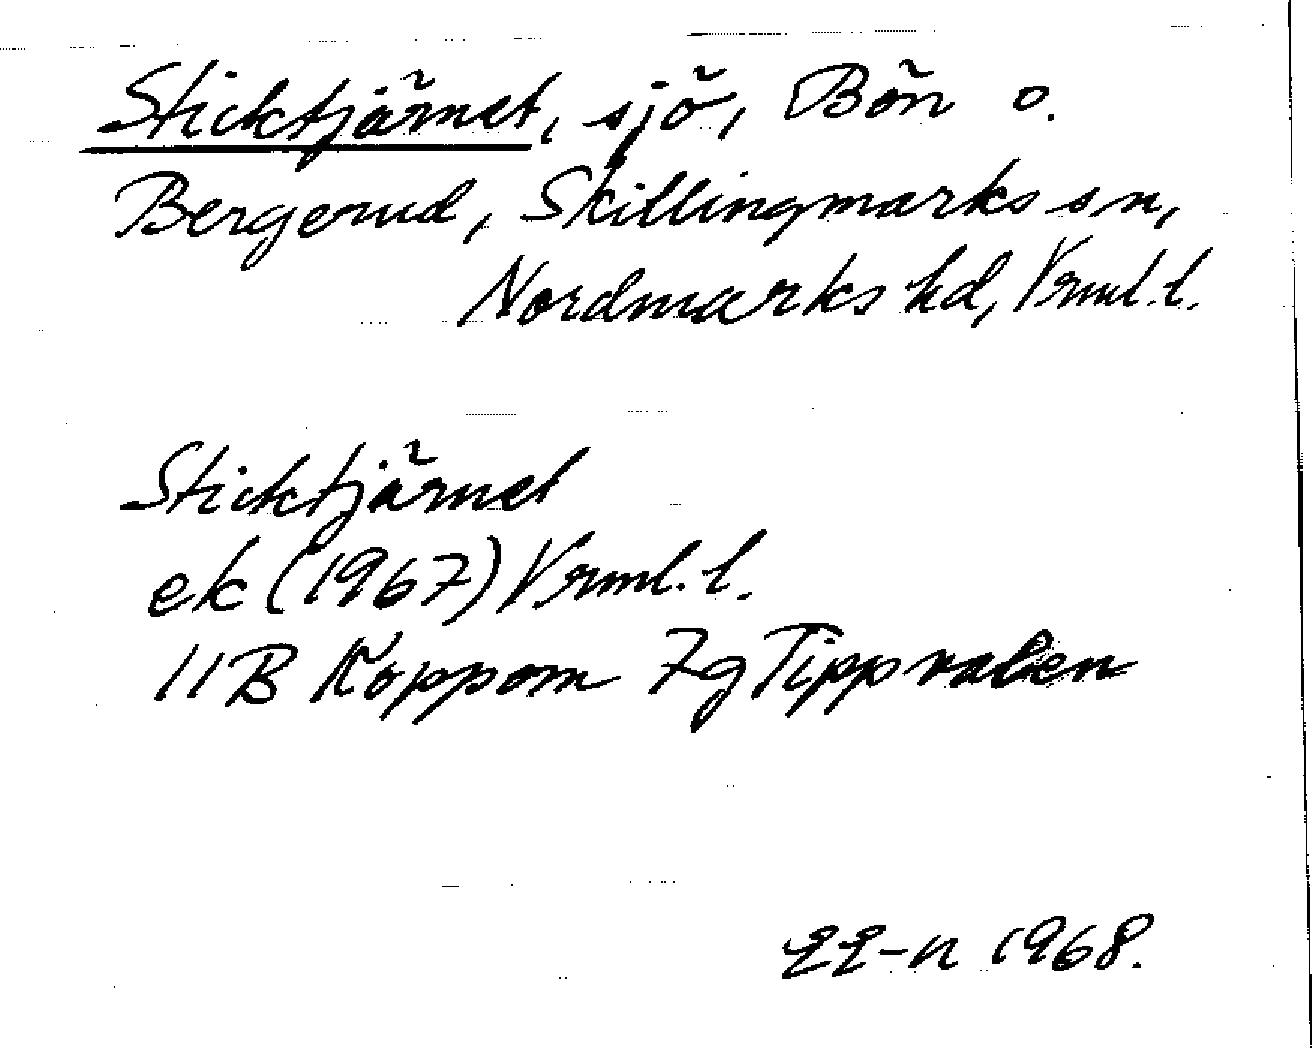 Sticktjärnet, sjö, Bön o.
Bergerud, Skillingmarks sn,
Nordmarks hd, Vrml. l.
Sticktjärnet
ek (1967) Vrml. l.
11B Koppom 7g Tippvalen
EE-n 1968.